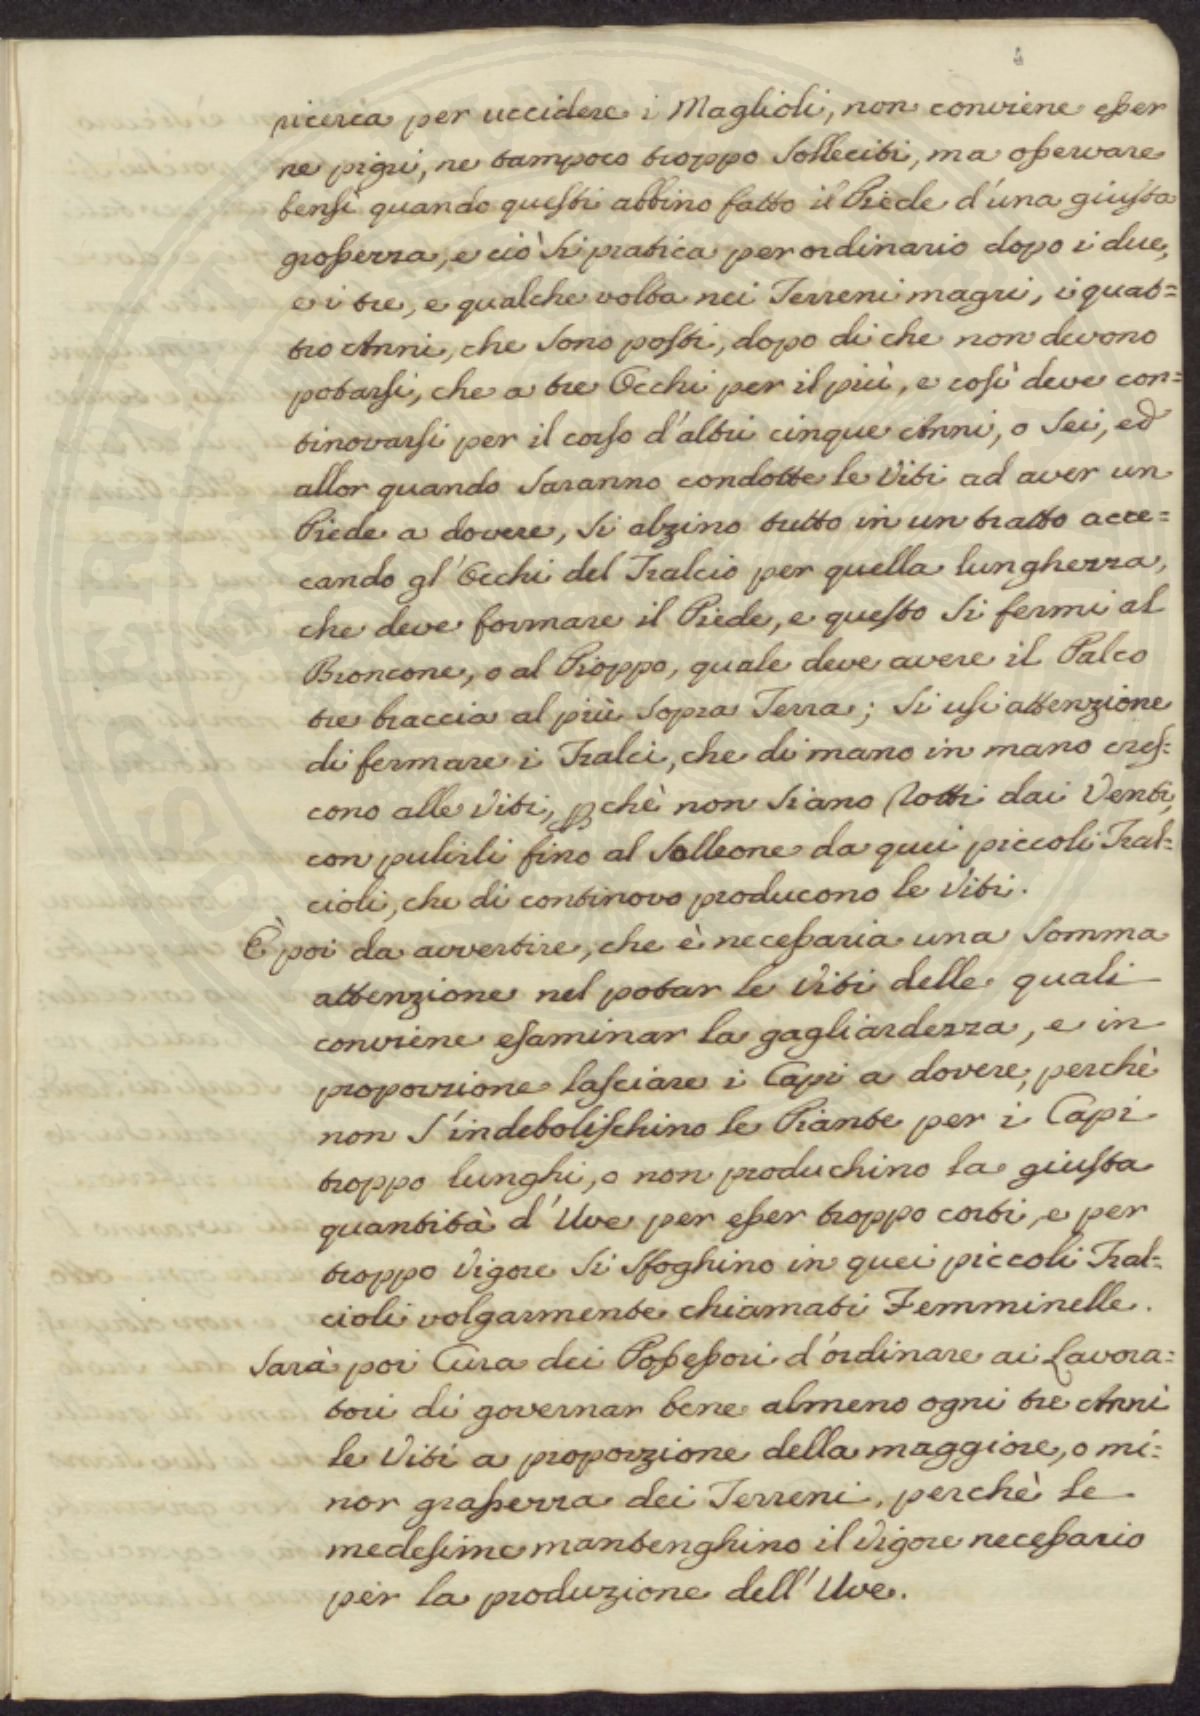 4
ricerca per uccidere i Maglioli, non conviene esser
ne pigri, ne tampoco troppo solleciti, ma osservare
bensì quando questi abbino fatto il Piede d'una giusta
grossezza, e ciò si pratica per ordinario dopo i due,
e i tre, e qualche volta nei Terreni magri, i quat=
tro Anni, che sono posti, dopo di che non devono
potarsi, che a tre Occhi per il più, e così deve con=
tinovarsi per il corso d'altri cinque Anni, o sei, ed
allor quando saranno condotte le Viti ad aver un
Piede a dovere, si alzino tutto in un tratto acce=
cando gl'Occhi del Tralcio per quella lunghezza,
che deve formare il Piede, e questo si fermi al
Broncone, o al Pioppo, quale deve avere il Palco
tre braccia al più sopra Terra; si usi attenzione
di fermare i Tralci, che di mano in mano cres=
cono alle Viti, pchè non siano rotti dai Venti,
con pulirli fino al Solleone da quei piccoli Tral=
cioli, che di continovo producono le Viti.
È poi da avvertire, che è necessaria una somma
attenzione nel potar le Viti delle quali
conviene esaminar la gagliardezza, e in
proporzione lasciare i Capi a dovere, perchè
non s'indebolischino le Piante per i Capi
troppo lunghi, o non produchino la giusta
quantità d'Uve per esser troppo corti, e per
troppo vigore si sfoghino in quei piccoli Tral=
cioli volgarmente chiamati Femminelle.
Sarà poi Cura dei Possessori d'ordinare ai Lavora=
tori di governar bene almeno ogni tre Anni
le Viti a proporzione della maggiore, o mi=
nor grassezza dei Terreni, perchè le
medesime mantenghino il vigore necessario
per la produzione dell'Uve.